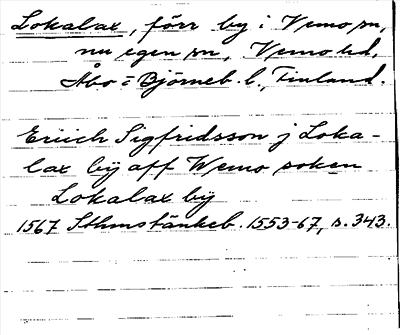 Lokalax, förr by i Vemo sn,
nu egen sn, Vemo hd,
Åbo = Björneb. l., Finland.
Eriich Sigfridsson j Loka-
lax bÿ aff Wemo soken
Lokalax bÿ
1567 Sthmstänkeb. 1553-67, s. 343.